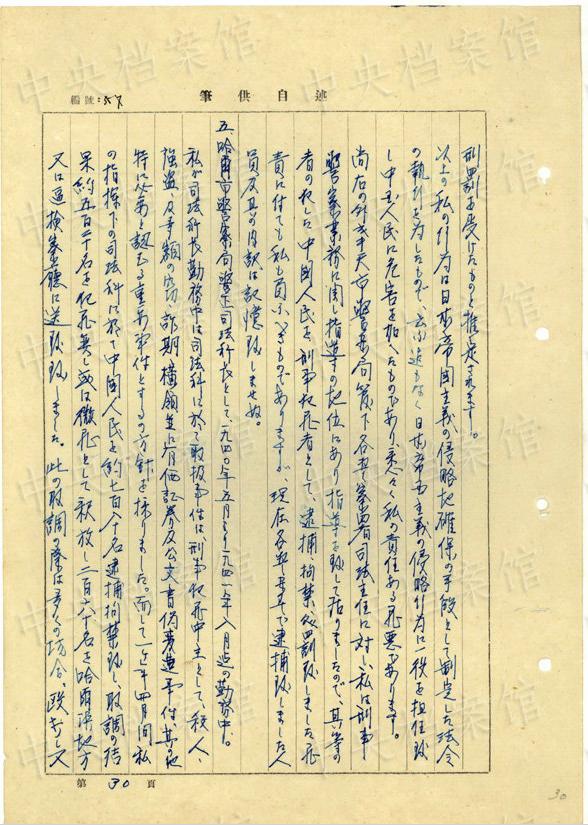 編號:57
筆供自述
刑罰を受けたものと推定されます。
以上の私の行為は日本帝国主義の侵略地確保の手段として制定した法令
の執行を為したもので、云ふ迄もなく日本帝国主義の侵略行為に一役を担任致
し中国人民に危害を加へたものであり、悉く私の責任ある罪悪であります。
尚右の外奉天市警察局管下各警察署司法主任に対し、私は刑事
警察業務に関し指導の地位にあり指導を致して居りましたので、其等の
者の犯した中国人民を刑事犯罪者として、逮捕拘禁、処罰致しました罪
責に付ても私も負ふべきものでありますが、現在各署に於て逮捕致しました人
員及其の内訳は記憶致しませぬ。
五、哈爾濱市警察局警正司法科長として、一九四〇年五月より一九四一年八月迄の勤務中。
私が司法科長勤務中は司法科に於て取扱事件は、刑事犯罪中主として、殺人、
強盗、及多額の窃盗、詐欺横領並に有価証券及公文書偽変造事件其の他
特に必要と認むる重要事件とするの方針を採りました。而して一ヶ年四月間私
の指揮下の司法科に於て中国人民を約七百八十名逮捕拘禁致し、取調の結
果約五百二十名を犯罪無し或は微罪として釈放し二百六十名を哈爾濱地方
又は區検察廳に送致致しました。此の取調の際は多くの場合、殴打し又
第 30 頁
30
中央档案馆